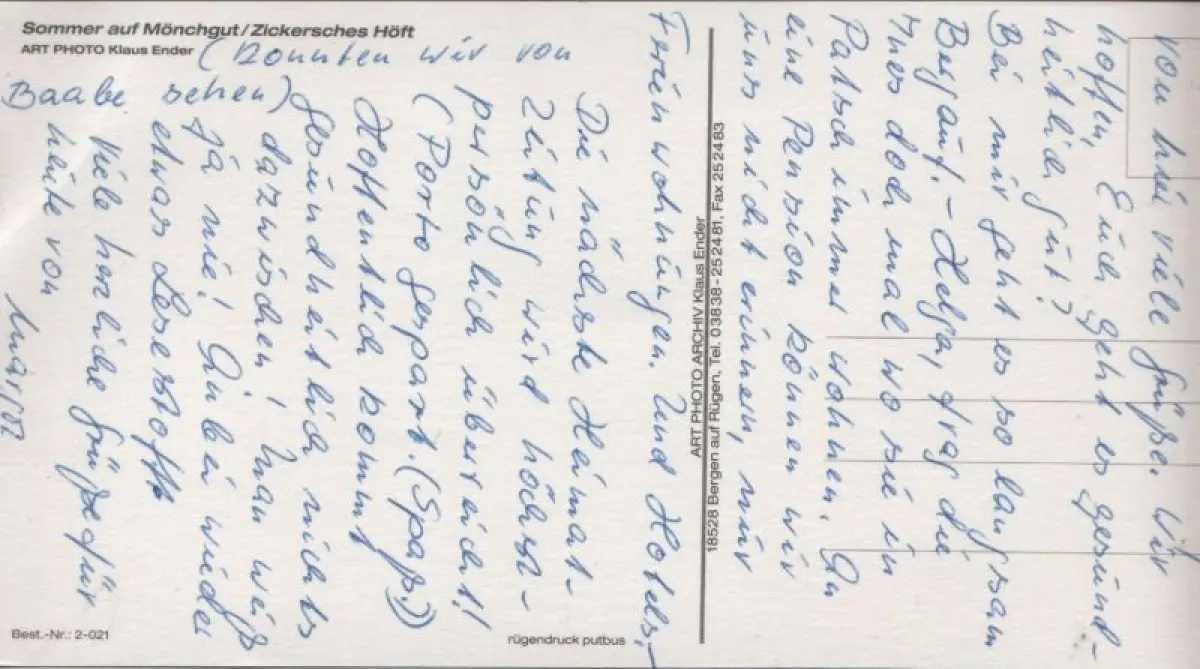 Sommer auf Mönchgut/Zickersches Höft
ART PHOTO Klaus Ender
(Konnten wir von
Baabe sehen)
von hier viele Grüße. Wir
hoffen, Euch geht es gesund-
heitlich gut?
Bei mir geht es so langsam
Bergauf. - Helga, frag die
Ines doch mal wo sie in
Patsch immer wohnen. An
eine Pension können wir
uns nicht erinnern, nur
Ferienwohnungen. Und Hotels,-
Die nächste Heimat-
Zeitung wird höchst-
persönlich überreicht!
(Porto gespart. (Spaß.))
Hoffentlich kommt
gesundheitlich nichts
dazwischen, man weiß
ja nie! Anbei wieder
etwas Lesestoff
Viele herzliche Grüße für
heute von
ART PHOTO ARCHIV Klaus Ender
18528 Bergen auf Rügen, Tel. 03838-252481, Fax 252483
Best.-Nr.: 2-021
rügendruck putbus